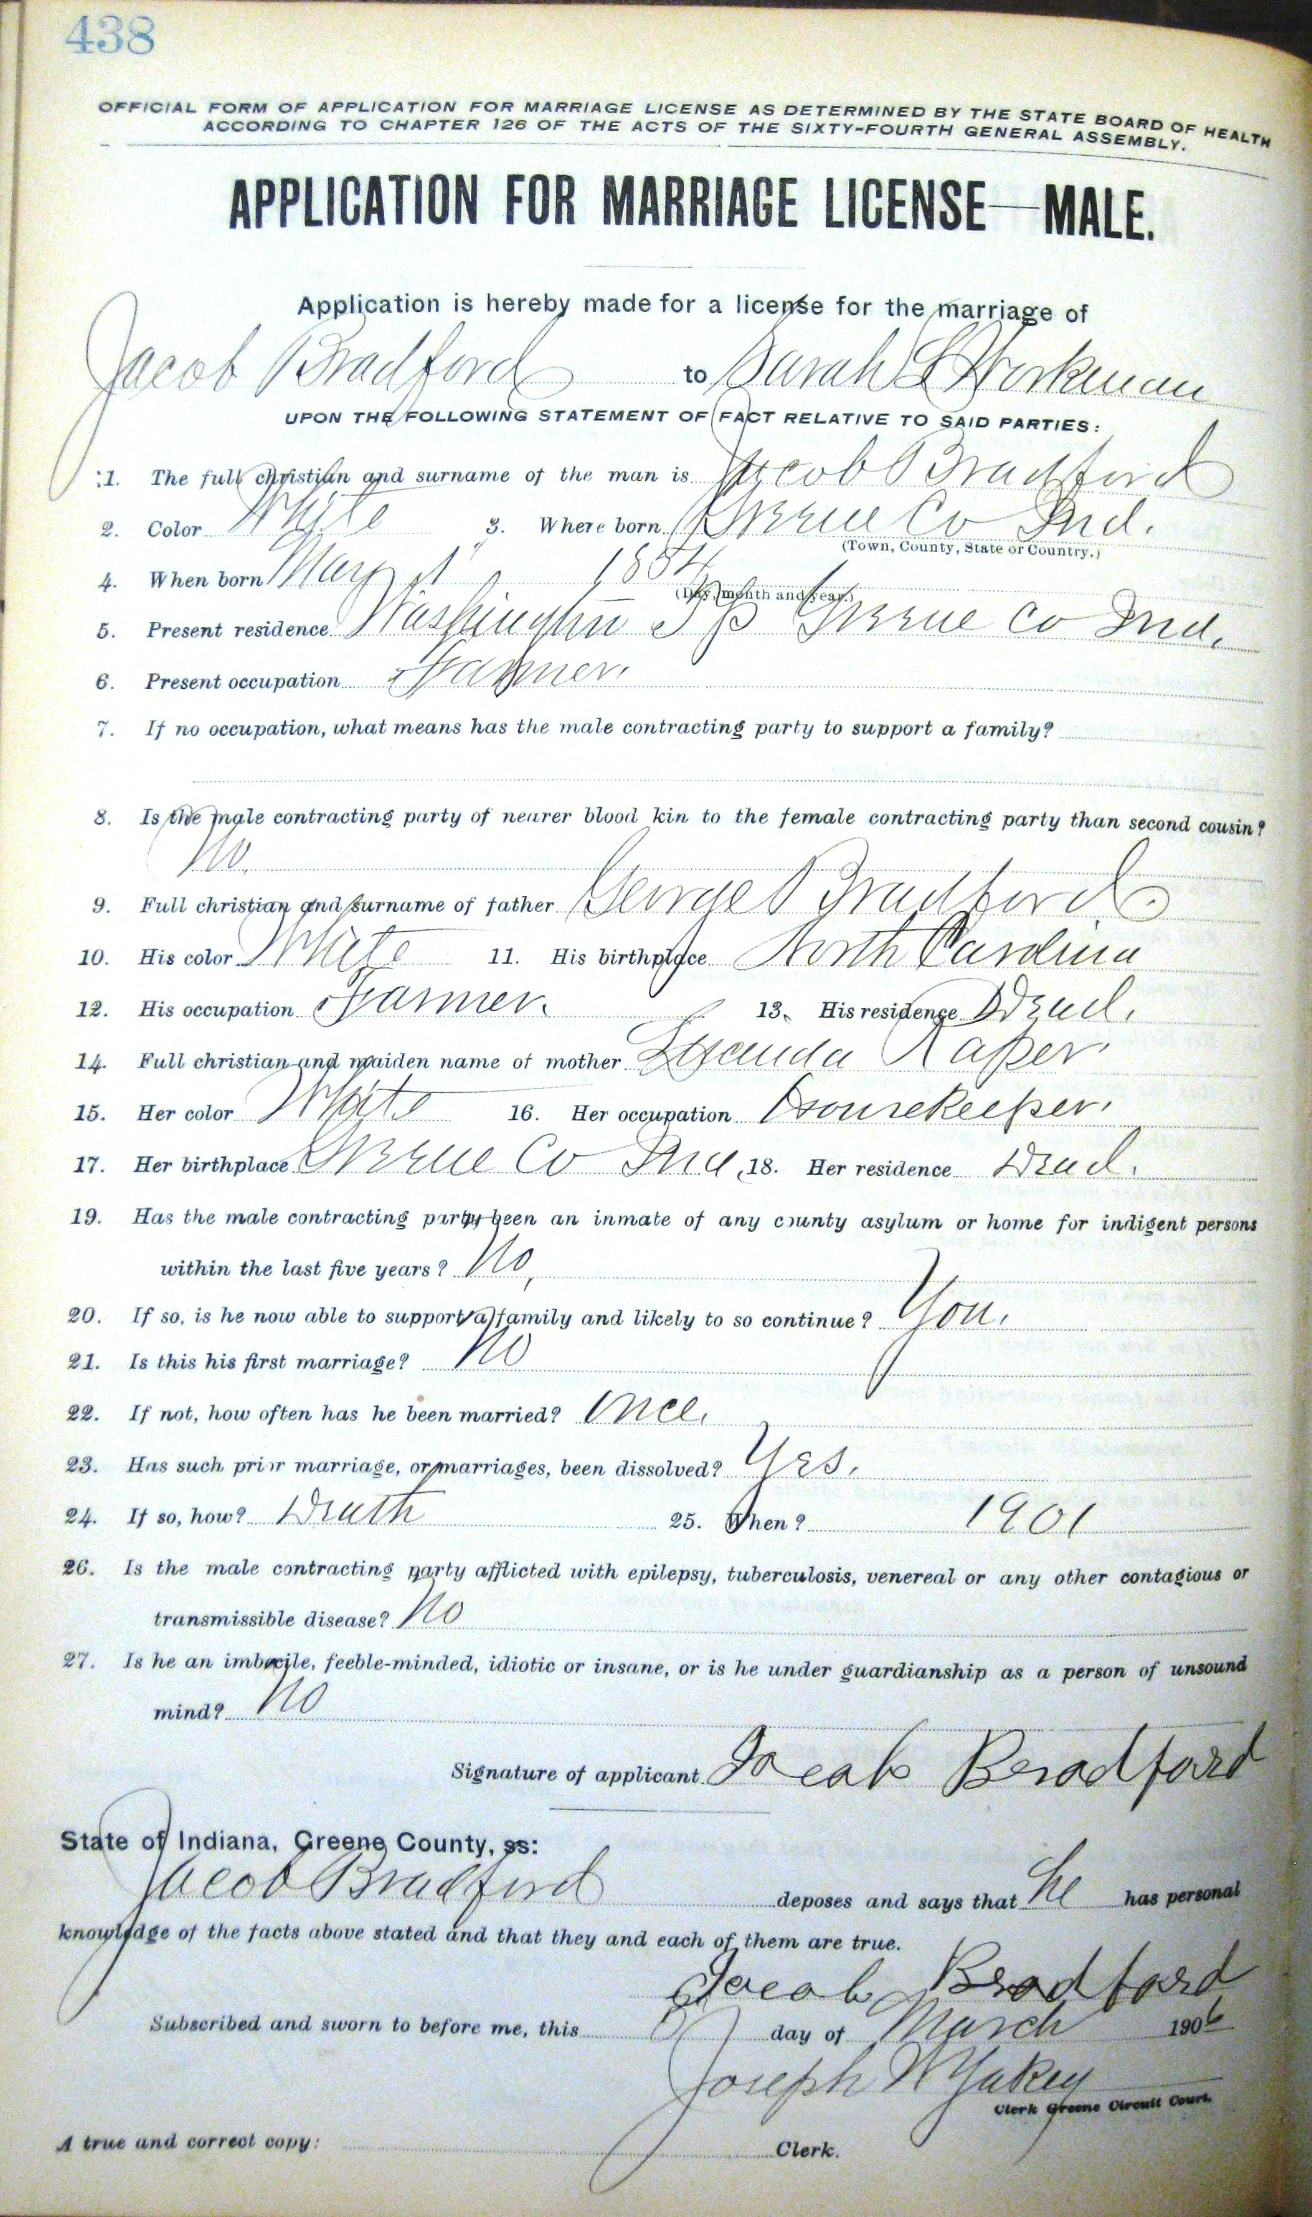 438
OFFICIAL FORM OF APPLICATION FOR MARRIAGE LICENSE AS DETERMINED BY THE STATE BOARD OF HEALTH
ACCORDING TO CHAPTER 126 OF THE ACTS OF THE SIXTY-FOURTH GENERAL ASSEMBLY.
APPLICATION FOR MARRIAGE LICENSE—MALE.
Application is hereby made for a license for the marriage of
Jacob Bradford to Sarah L Workman
UPON THE FOLLOWING STATEMENT OF FACT RELATIVE TO SAID PARTIES:
1. The full christian and surname of the man is Jacob Bradford
2. Color White 3. Where born Greene Co Ind.
(Town, County, State or Country.)
4. When born May 1" 1854
(Day, month and year.)
5. Present residence Washington Tp Greene Co Ind.
6. Present occupation Farmer.
7. If no occupation, what means has the male contracting party to support a family?
8. Is the male contracting party of nearer blood kin to the female contracting party than second cousin?
No.
9. Full christian and surname of father George Bradford.
10. His color White 11. His birthplace North Carolina
12. His occupation Farmer. 13. His residence Dead.
14. Full christian and maiden name of mother Lucinda Raper.
15. Her color White 16. Her occupation Housekeeper.
17. Her birthplace Greene Co Ind, 18. Her residence Dead.
19. Has the male contracting party been an inmate of any county asylum or home for indigent persons
within the last five years? No,
20. If so, is he now able to support a family and likely to so continue? You.
21. Is this his first marriage? No
22. If not, how often has he been married? Once.
23. Has such prior marriage, or marriages, been dissolved? Yes.
24. If so, how? Death 25. When? 1901
26. Is the male contracting party afflicted with epilepsy, tuberculosis, venereal or any other contagious or
transmissible disease? No
27. Is he an imbecile, feeble-minded, idiotic or insane, or is he under guardianship as a person of unsound
mind? No
Signature of applicant Jacob Bradford
State of Indiana, Greene County, ss:
Jacob Bradford deposes and says that he has personal
knowledge of the facts above stated and that they and each of them are true.
Jacob Bradford
Subscribed and sworn to before me, this day of March 1906
Joseph W Yakey
Clerk Greene Circuit Court.
A true and correct copy: Clerk.